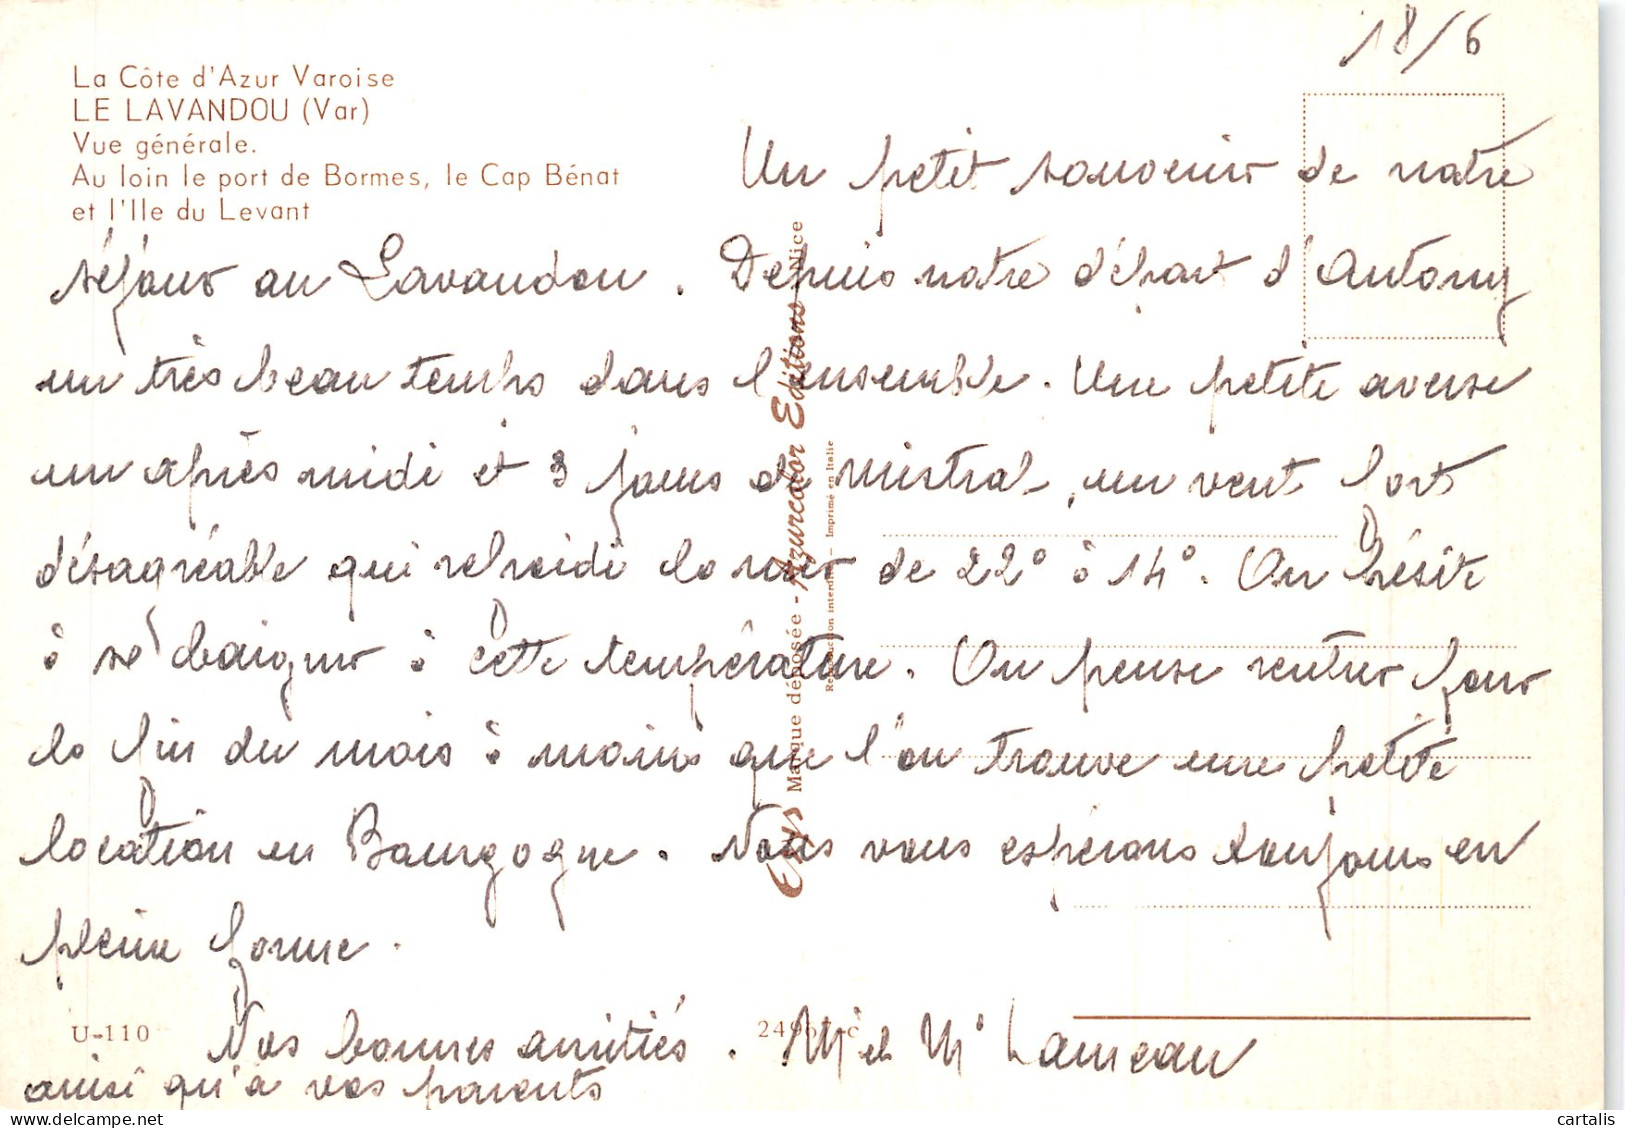 18/6
La Côte d'Azur Varoise
LE LAVANDOU (Var)
Vue générale.
Au loin le port de Bormes, le Cap Bénat
et l'Ile du Levant
Un petit souvenir de notre
séjour au Lavandou. Depuis notre départ d'Antony
un très beau temps dans l'ensemble. Une petite averse
un après midi et 3 jours de mistral, un vent fort
désagréable qui refroidi la mer de 22° à 14°. On hésite
à se baigner à cette température. On pense rentrer pour
la fin du mois à moins que l'on trouve une petite
location en Bourgogne. Nous vous espérons toujours en
pleine forme.
Nos bonnes amitiés. Mr et Me Lameau
ainsi qu'à vos parents
U-110
Eys Marque déposée - Azurcolor Editions - Nice
Reproduction interdite — Imprimé en Italie
cartalis.com